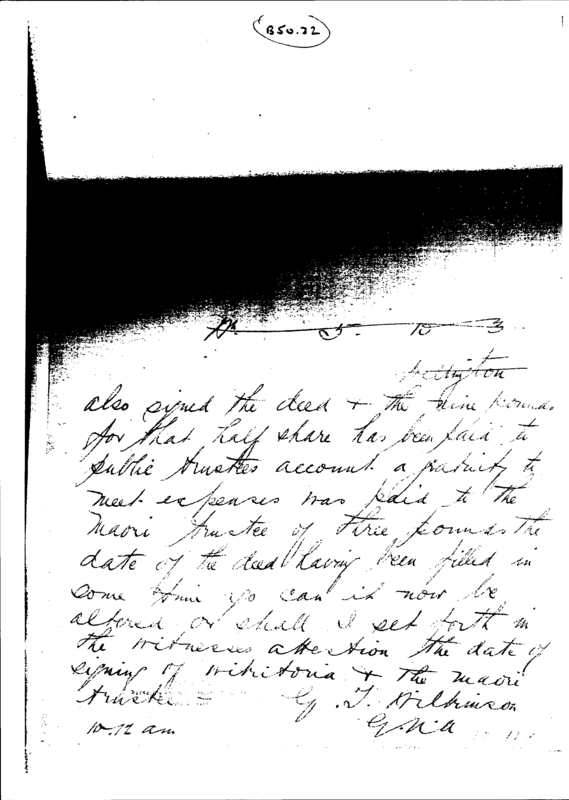 B50.22
5 10 3
Wellington
also signed the deed + the nine pounds
for that half share has been paid to
public trustees account a gratuity to
meet expenses was paid to the
Maori trustee of three pounds the
date of the deed having been filled in
some time ago can it now be
altered or shall I set forth in
the witnesses attestion the date of
signing of Wikitoria + the maori
trustee = G. T. Wilkinson
10.12 am